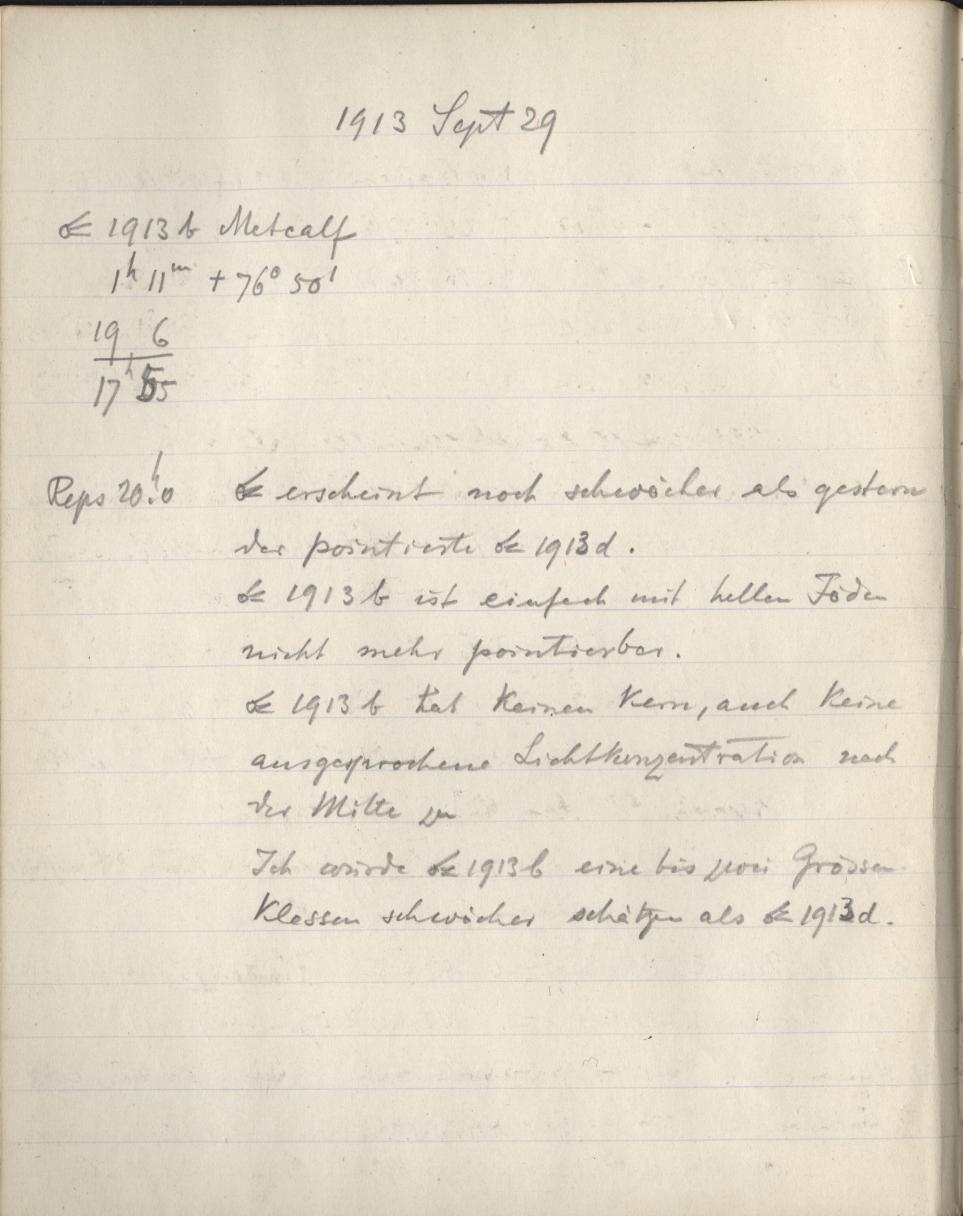 1913 Sept 29
☄ 1913 b Metcalf
1ʰ 11ᵐ + 76° 50'
19 6
17ʰ 55
Reps 20ʰ.0 ☄ erscheint noch schwächer als gestern
der pointierte ☄ 1913 d.
☄ 1913 b ist einfach mit hellen Fäden
nicht mehr pointierbar.
☄ 1913 b hat keinen Kern, auch keine
ausgesprochene Lichtkonzentration nach
der Mitte zu
Ich würde ☄ 1913 b eine bis zwei Grössen-
klassen schwächer schätzen als ☄ 1913 d.